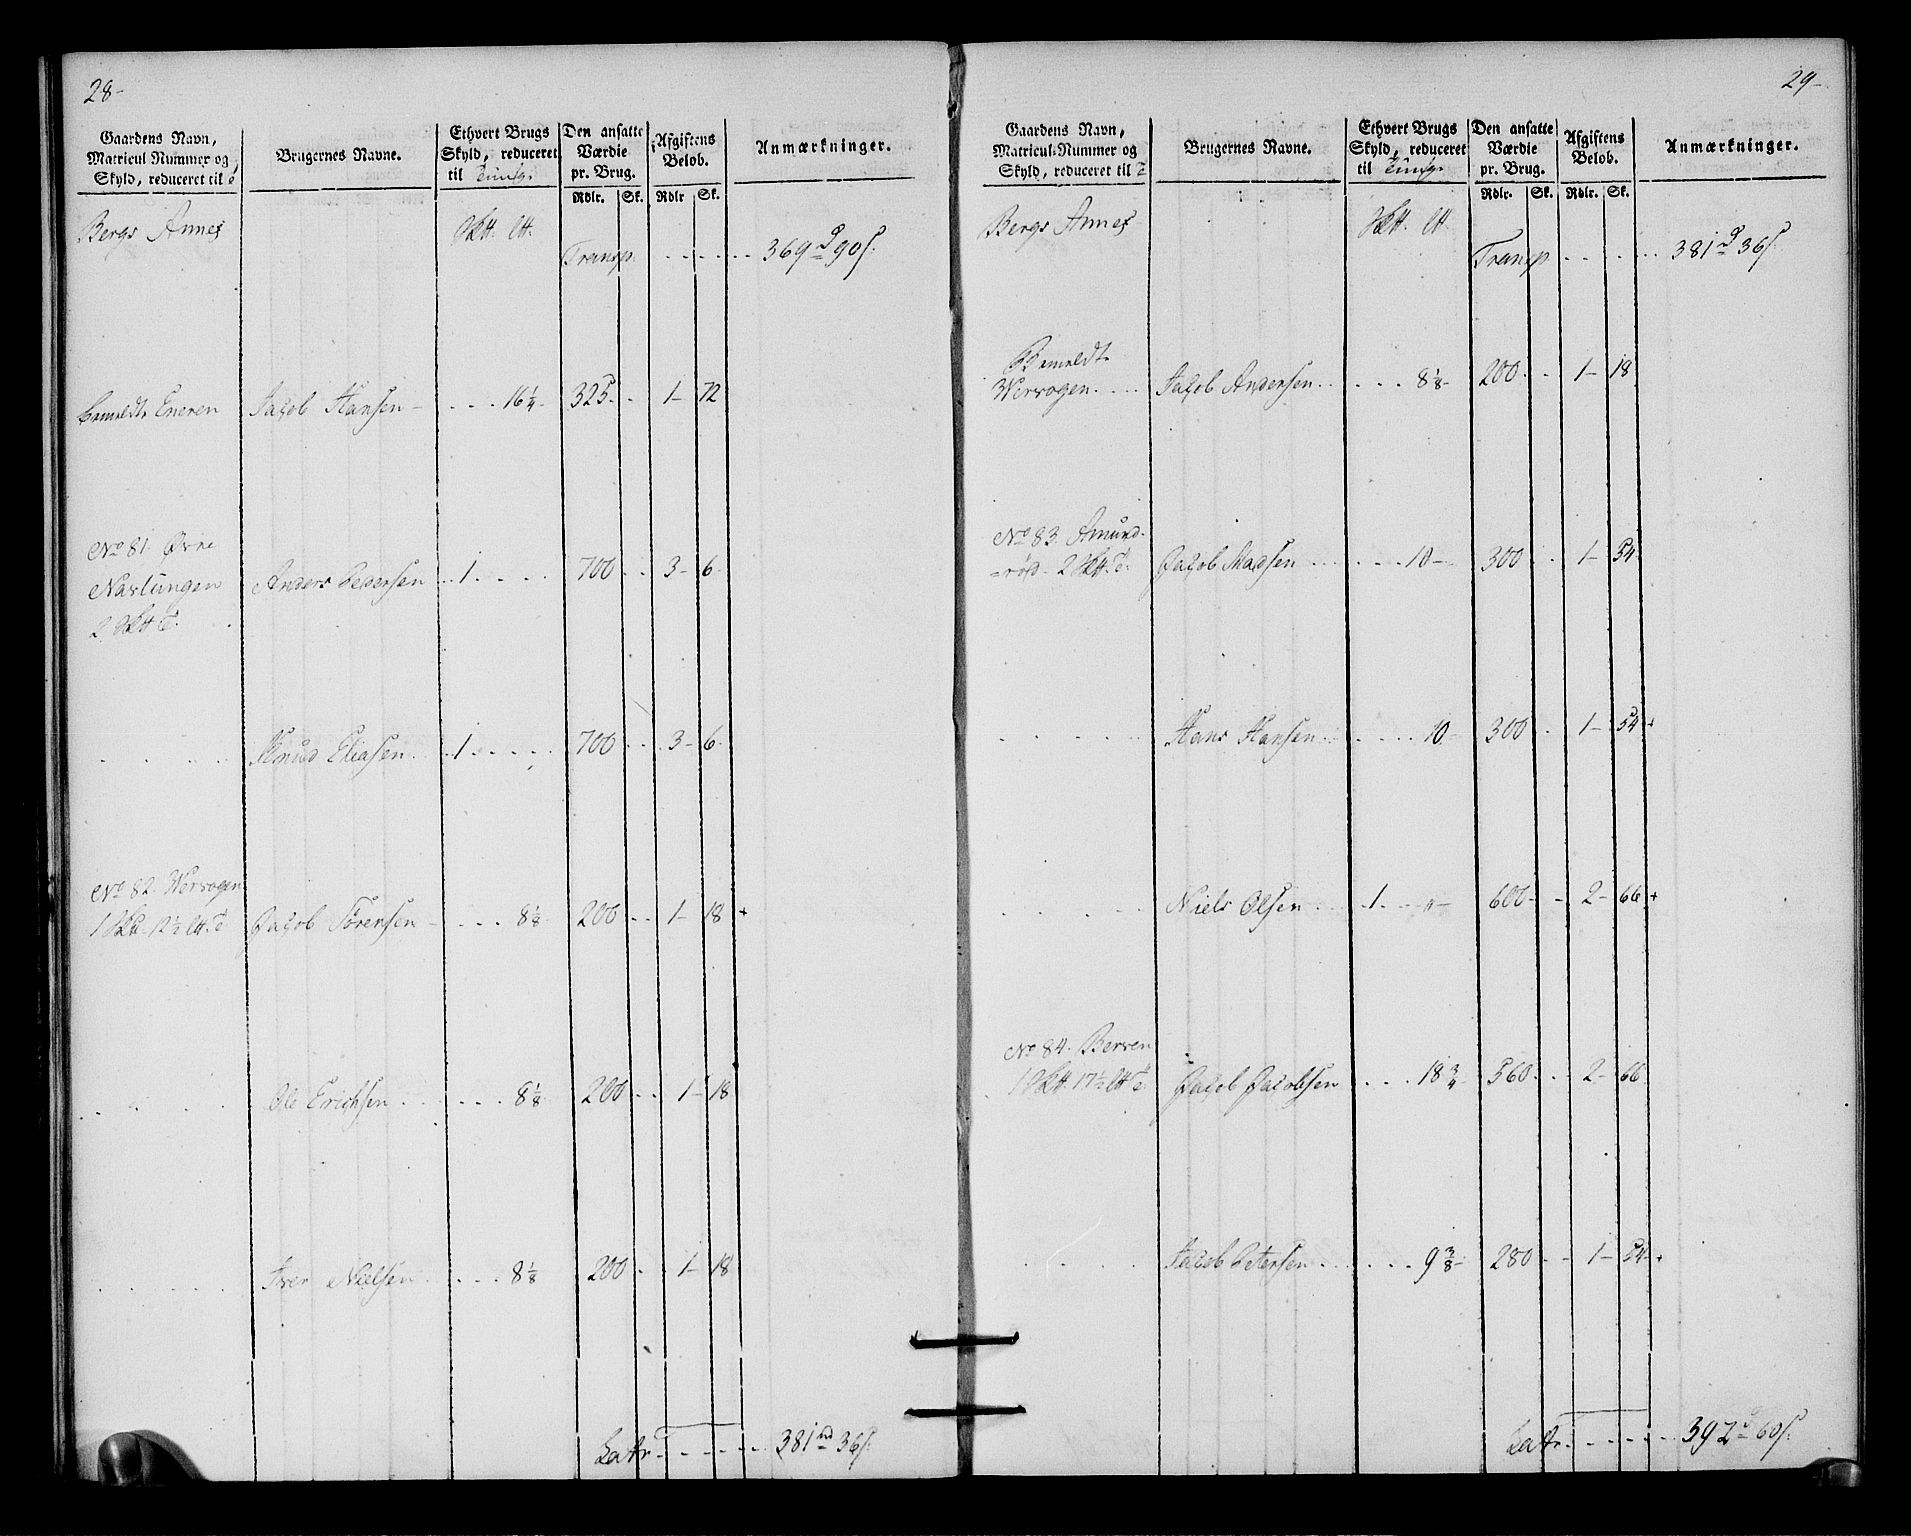 28-
Gaardens Navn,
Matricul Nummer og
Skyld, reduceret til
Brugernes Navne.
Ethvert Brugs
Skyld, reduceret
til Tunge
Den ansatte
Værdie
pr. Brug.
Rdlr. Sk.
Afgiftens
Beløb.
Rdlr Sk.
Anmærkninger.
Bergs Annex
Transp. . . . . . 369 90
bemeldte Eneren Jacob Hansen - . . . 16 1/4 325 1 - 72
No 81. Øvre
Navlungen Anders Pedersen 1 . . . . 700 3 - 6
2
Knud Eliasen 1 . . . . 700 3 - 6
No 82. Wervogen
1 12 1/2 Jacob Sørensen . . . 8 1/8 200 1 - 18 +
Ole Erichsen . . . 8 1/8 200 1 - 18
Iver Nielsen . . . 8 1/8 200 1 - 18
Latr. . . . . . 381 36
29-
Gaardens Navn,
Matricul-Nummer og
Skyld, reduceret til
Brugernes Navne.
Ethvert Brugs
Skyld, reduceret
til Tunge
Den ansatte
Værdie
pr. Brug.
Rdlr. Sk.
Afgiftens
Beløb.
Rdlr. Sk.
Anmærkninger.
Bergs Annex
Transp . . . . . 381 36
Bemeldte
Wervogen . . . Jacob Andersen . . . 8 1/8 200 1 - 18
No 83. Amund-
=rød 2 Jacob Madsen . . . 10 - 300 1 - 54
Hans Hansen . . . 10 - 300 1 - 54 +
Niels Olsen 1 . . " - 600 2 - 66 +
No 84. Berven
1 17 1/2 Jacob Jacobsen . . . 18 3/4 560 2 - 66
Jacob Petersen . . . 9 3/8 280 1 - 54 +
Latr. . . . . . 392 60